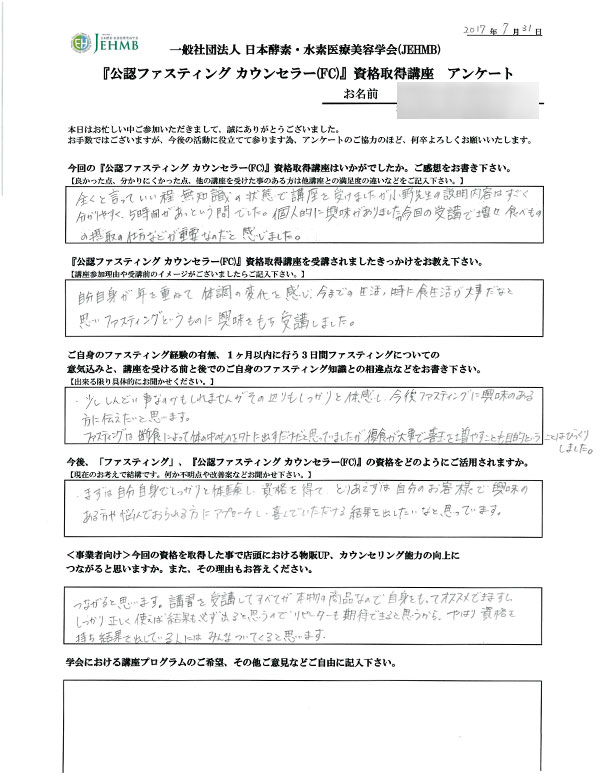 JEHMB
2017年 7月 31日
一般社団法人 日本酵素・水素医療美容学会(JEHMB)
『公認ファスティング カウンセラー(FC)』資格取得講座 アンケート
お名前
本日はお忙しい中ご参加いただきまして、誠にありがとうございました。
お手数ではございますが、今後の活動に役立てて参ります為、アンケートのご協力のほど、何卒よろしくお願いいたします。
今回の『公認ファスティング カウンセラー(FC)』資格取得講座はいかがでしたか。ご感想をお書き下さい。
【良かった点、分かりにくかった点、他の講座を受けた事のある方は他講座との満足度の違いなどをご記入下さい。】
全くと言っていい程 無知識の状態で講座を受けましたが小野先生の説明内容はすごく
分かりやすく、5時間があっという間でした。個人的に興味がありました今回の受講で増々 食べもの
の摂取の仕方などが重要なんだと 感じました。
『公認ファスティング カウンセラー(FC)』資格取得講座を受講されましたきっかけをお教え下さい。
【講座参加理由や受講前のイメージがございましたらご記入下さい。】
自分自身が年を重ねて 体調の変化を感じ、今までの生活、特に食生活が大事だなと
思いファスティングというものに興味をもち受講しました。
ご自身のファスティング経験の有無、1ヶ月以内に行う3日間ファスティングについての
意気込みと、講座を受ける前と後でのご自身のファスティング知識との相違点などをお書き下さい。
【出来る限り具体的にお聞かせください。】
・少ししんどい事なのかもしれませんがその辺りもしっかりと体感し、今後ファスティングに興味のある
方に伝えたいと思います。
ファスティングは断食によって体の中のものを外に出すだけだと思っていましたが復食が大事で善玉を増やすことも目的ということはびっくり
しました。
今後、「ファスティング」、『公認ファスティング カウンセラー(FC)』の資格をどのようにご活用されますか。
【現在のお考えで結構です。何か不明点や改善案などお聞かせ下さい。】
・まずは自分自身でしっかりと体験し 資格を得て、とりあえずは自分のお客様で興味の
ある方や悩んでおられる方にアプローチし喜んでいただける結果を出したいなと思っています。
＜事業者向け＞今回の資格を取得した事で店頭における物販UP、カウンセリング能力の向上に
つながると思いますか。また、その理由もお答えください。
つながると思います。講習を受講してすべてが本物の商品なので自身をもってオススメできますし、
しっかり正しく使えば結果も必ず出ると思うのでリピーターも期待できると思うから。やはり資格を
持ち結果を出している人にはみんなついてくると思います。
学会における講座プログラムのご希望、その他ご意見などご自由に記入下さい。